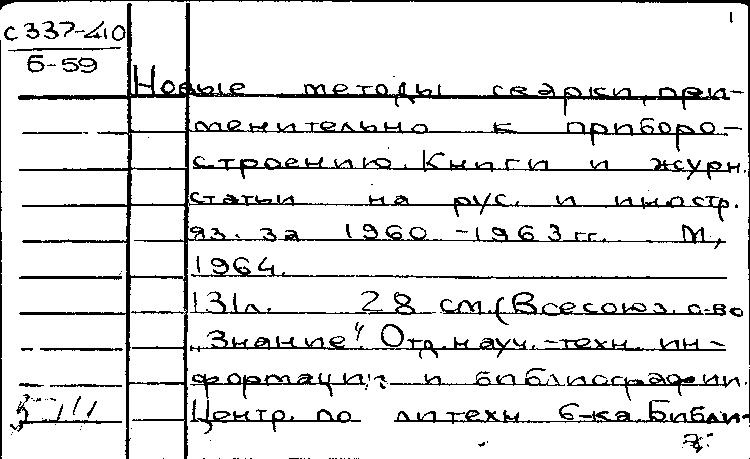 1
С337-410
б-59
Новые методы сварки, при-
менительно к приборо-
строению. Книги и журн.
статьи на рус. и иностр.
яз. за 1960 -1963 гг. М,
1964.
131л. 28 см. (Всесоюз. о-во
„Знание". Отд. науч.-техн. ин-
формации и библиографии.
Центр. политехн б-ка. Библи-